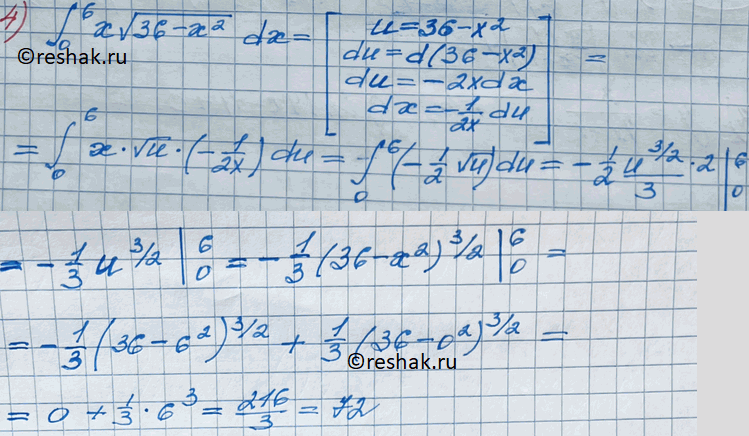 4) ∫₀⁶ x√(36-x²) dx = [ u=36-x²
du=d(36-x²)
du=-2xdx
dx=-1/2x du ] =
©reshak.ru
= ∫₀⁶ x·√u·(-1/2x) du = ∫₀⁶ (-1/2 √u) du = -1/2 u^3/2/3 · 2 |₀⁶
= -1/3 u^3/2 |₀⁶ = -1/3 (36-x²)^3/2 |₀⁶ =
= -1/3 (36-6²)^3/2 + 1/3 (36-0²)^3/2 =
©reshak.ru
= 0 + 1/3 · 6³ = 216/3 = 72